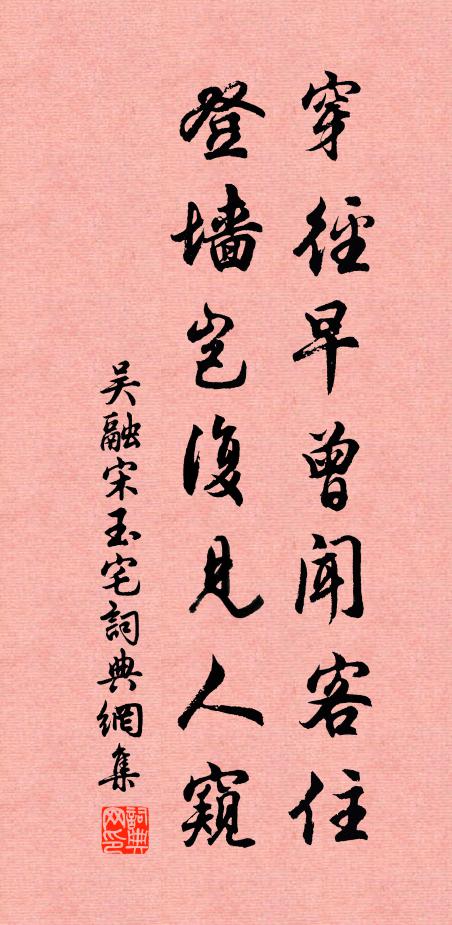 穿徑早曾聞客住
登墙岂復見人窺
吴融宋玉宅詞典網集
詞典网印